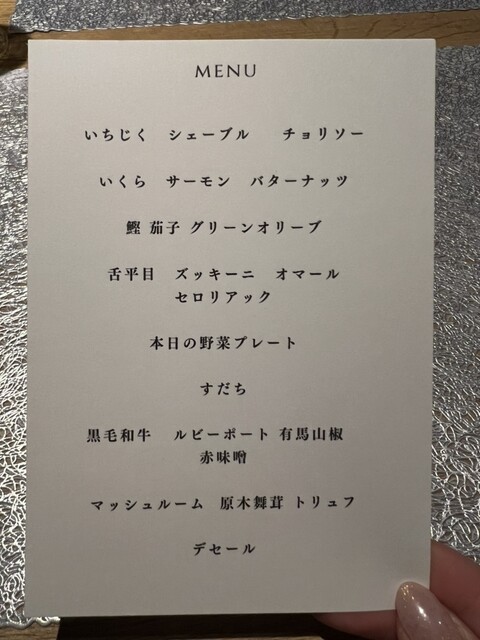 MENU
いちじく シェーブル チョリソー
いくら サーモン バターナッツ
鰹 茄子 グリーンオリーブ
舌平目 ズッキーニ オマール
セロリアック
本日の野菜プレート
すだち
黒毛和牛 ルビーポート 有馬山椒
赤味噌
マッシュルーム 原木舞茸 トリュフ
デセール